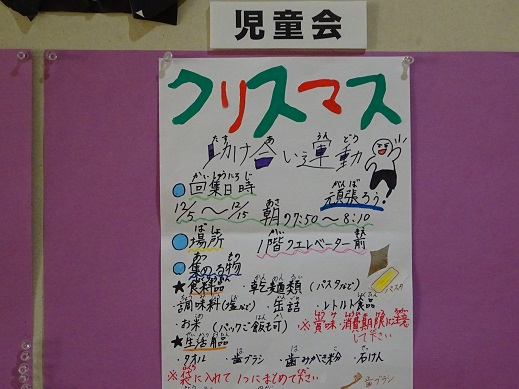 児童会
クリスマス
助け合い運動
頑張ろう!
回集日時
12/5～12/15 朝 07:50～8:10
場所 1階フエレベーター前
集める物
★食料品 ・乾麺類(パスタなど)
・調味料(塩など) ・缶詰 ・レトルト食品
・お米(パックご飯も可) ※賞味・消費期限に注意して下さい
★生活用品
・タオル ・歯ブラシ ・歯みがき粉 ・石けん
※袋に入れて1つにまとめて下さい
歯ブラシ